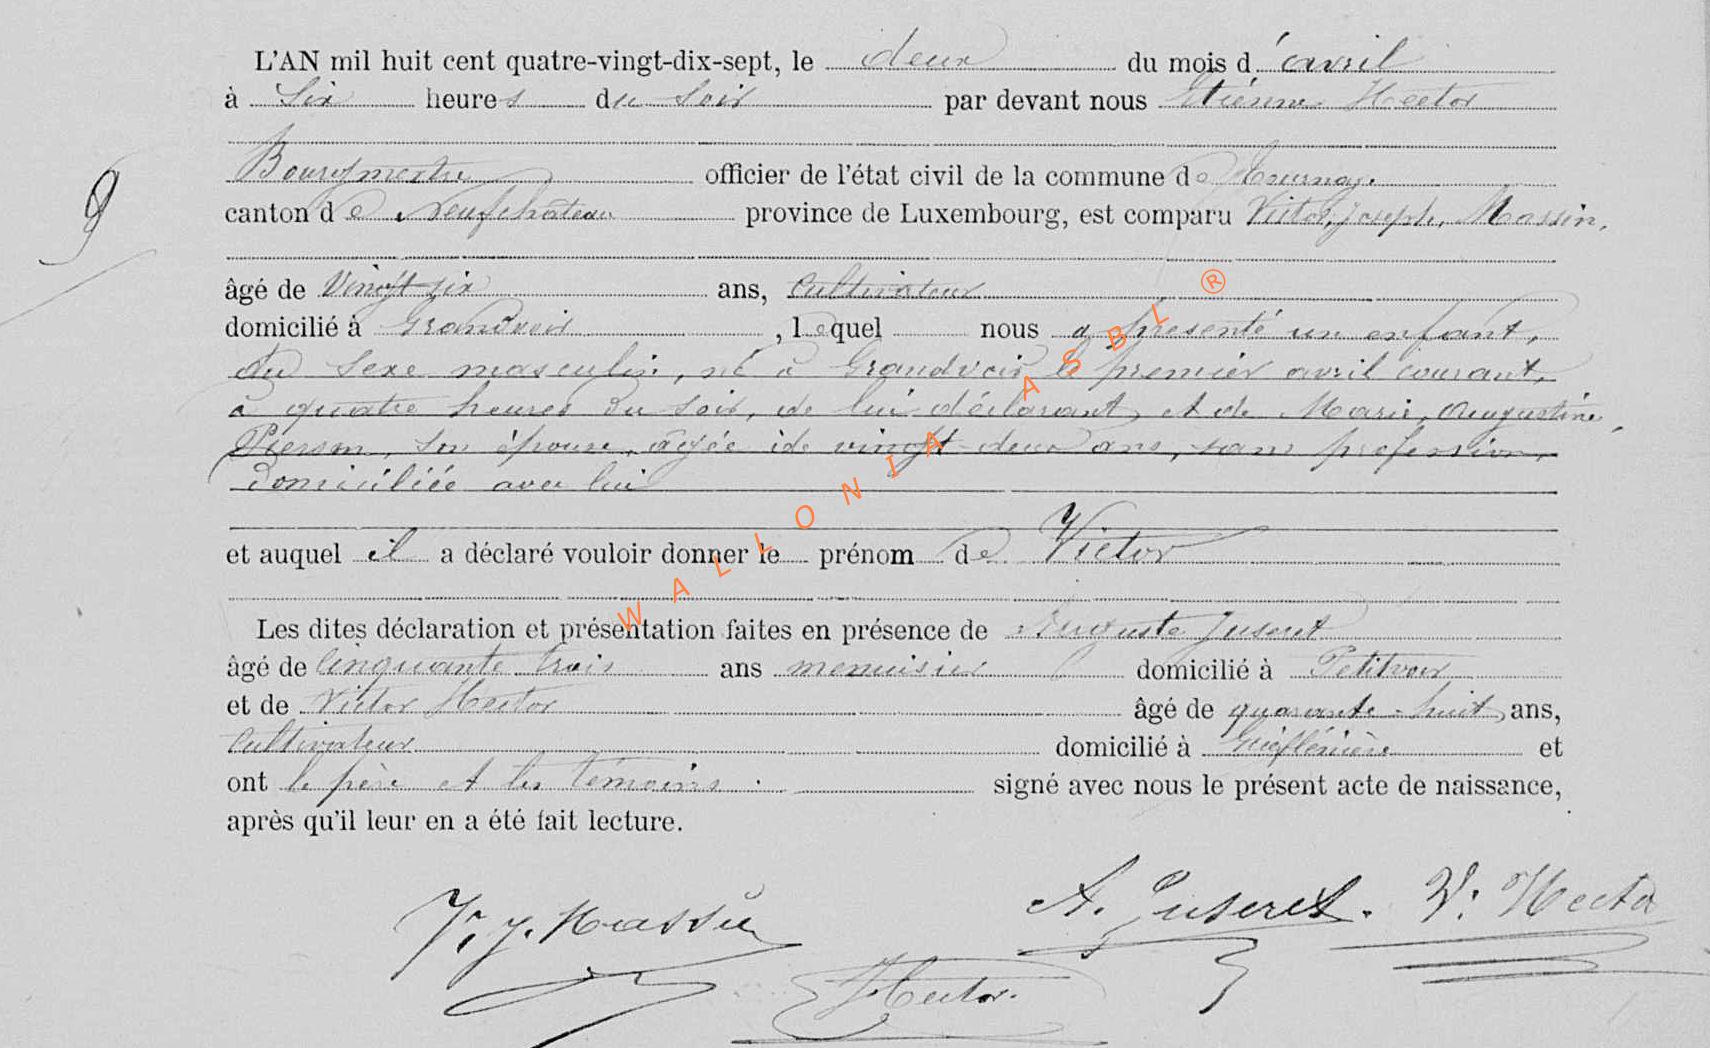 L'AN mil huit cent quatre-vingt-dix-sept, le deux du mois d'avril
à Six heures du soir par devant nous Etienne Hector
Bourgmestre officier de l'état civil de la commune de Tournay.
9
canton de Neufchâteau province de Luxembourg, est comparu Victor, Joseph, Massin,
âgé de Vingt six ans, cultivateur
domicilié à Grandvoir, lequel nous a présenté un enfant,
du sexe masculin, né à Grandvoir le premier avril courant,
à quatre heures du soir, de lui déclarant, et de Marie, Augustine,
Pierson, son épouse, âgée de vingt-deux ans, sans profession,
domiciliée avec lui
et auquel il a déclaré vouloir donner le prénom de Victor
Les dites déclaration et présentation faites en présence de Auguste Juseret
âgé de Cinquante trois ans menuisier domicilié à Petitvoir
et de Victor Hector âgé de quarante-huit ans,
cultivateur domicilié à et
ont le père et les témoins signé avec nous le présent acte de naissance,
après qu'il leur en a été fait lecture.
V. J. Massin A. Juseret. V. Hector
Hector.
WALLONIA ASBL ®